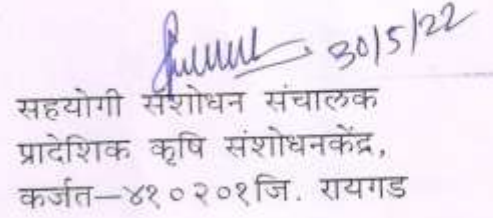 30/5/22
सहयोगी संशोधन संचालक
प्रादेशिक कृषि संशोधनकेंद्र,
कर्जत–४१०२०१जि. रायगड